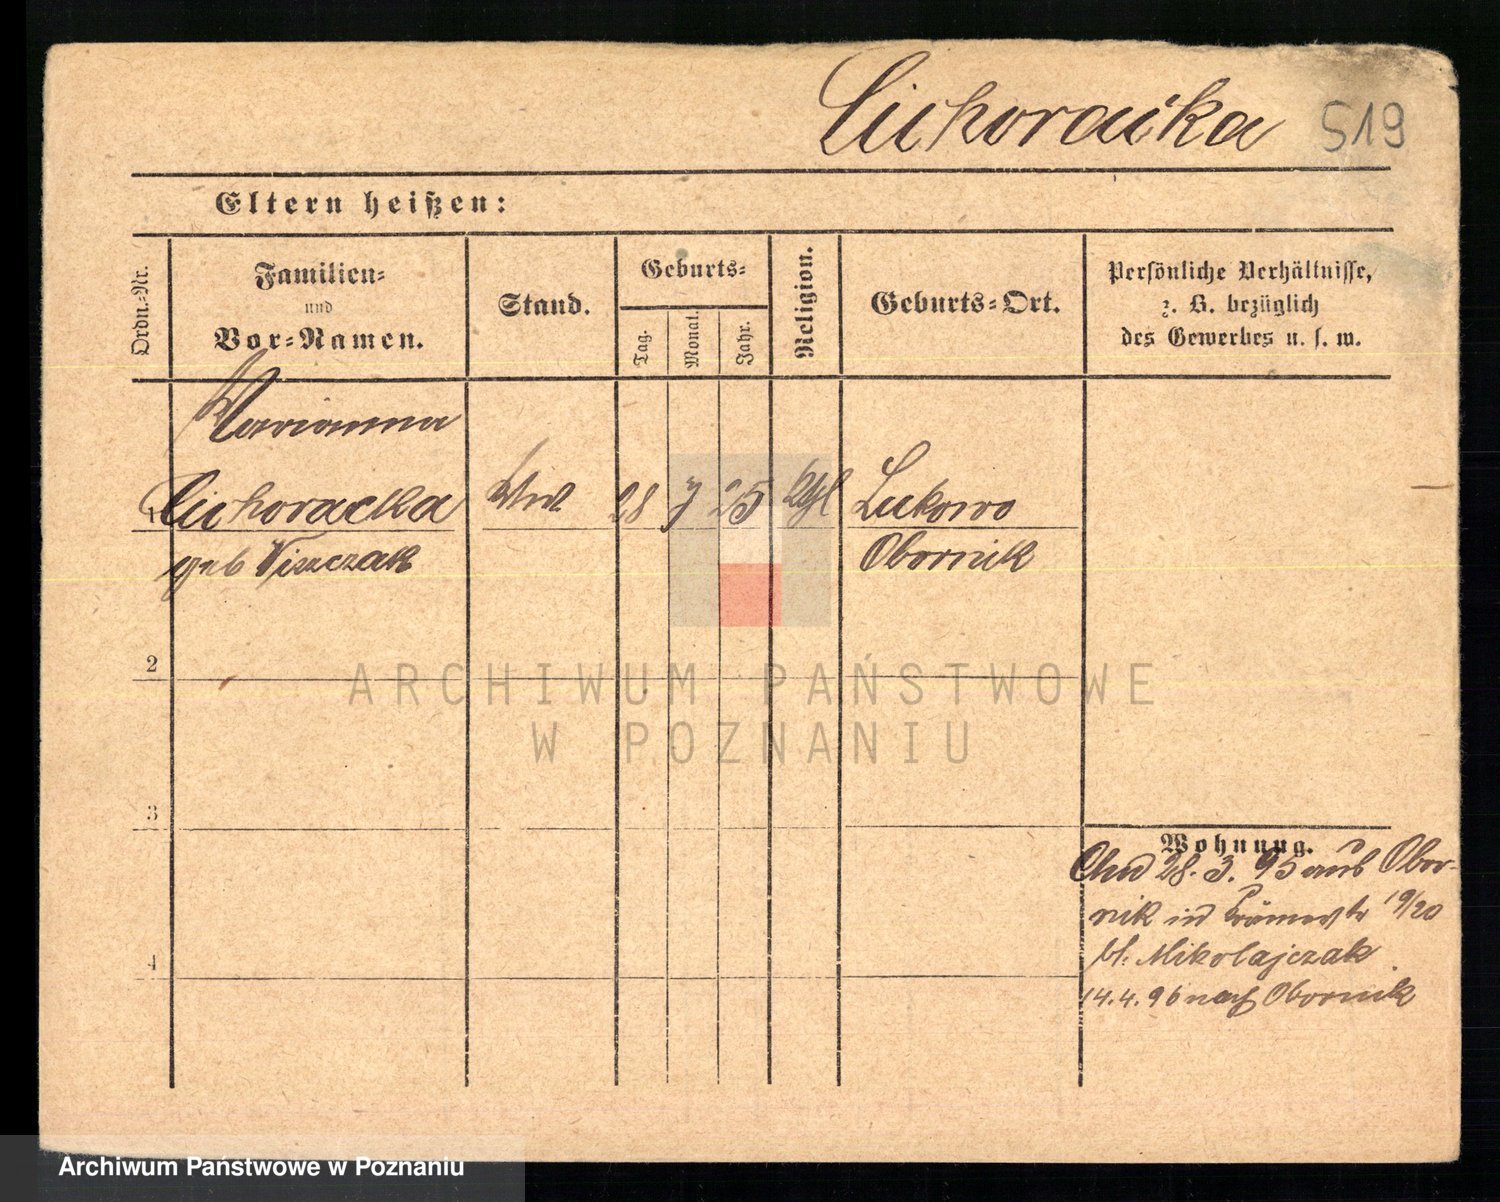 Cichoracka 519
Eltern heißen:
Ordn.-Nr.
Familien-
und
Vor-Namen.
Stand.
Geburts-
Tag.
Monat.
Jahr.
Religion.
Geburts-Ort.
Persönliche Verhältnisse,
z. B. bezüglich
des Gewerbes u. s. w.
Marianna
1 Cichoracka Ww 28 7 25 Kghl Lukowo
geb Obornik
2
3
4
Wohnung.
28. 3. 95 aus Obor-
nik in 19/20
bl. Mikolajczak
14. 4. 96 nach Obornik
ARCHIWUM PAŃSTWOWE
W POZNANIU
Archiwum Państwowe w Poznaniu